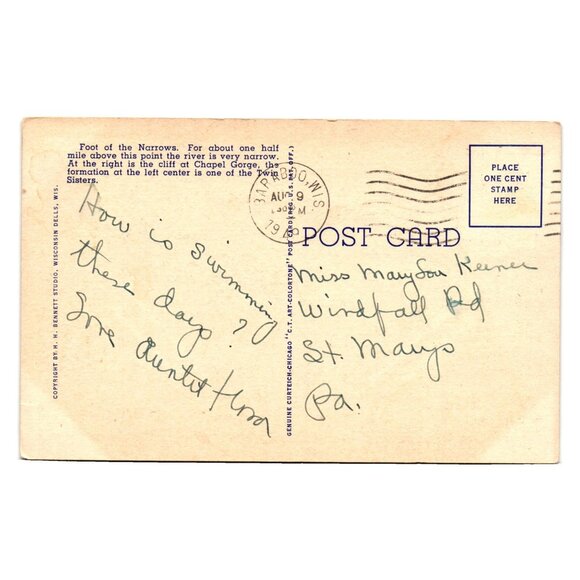 Foot of the Narrows. For about one half
mile above this point the river is very narrow.
At the right is the cliff at Chapel Gorge, the
formation at the left center is one of the Twin
Sisters.
How is swimming
these days?
Love Aunt
COPYRIGHT BY H. H. BENNETT STUDIO, WISCONSIN DELLS, WIS.
GENUINE CURTEICH-CHICAGO "C.T. ART-COLORTONE" POST CARD (REG. U.S. PAT. OFF.)
BARABOO, WIS.
AUG 9
M
POST CARD
PLACE
ONE CENT
STAMP
HERE
Miss Mary Lou Keener
Windfall Rd
St. Marys
Pa.